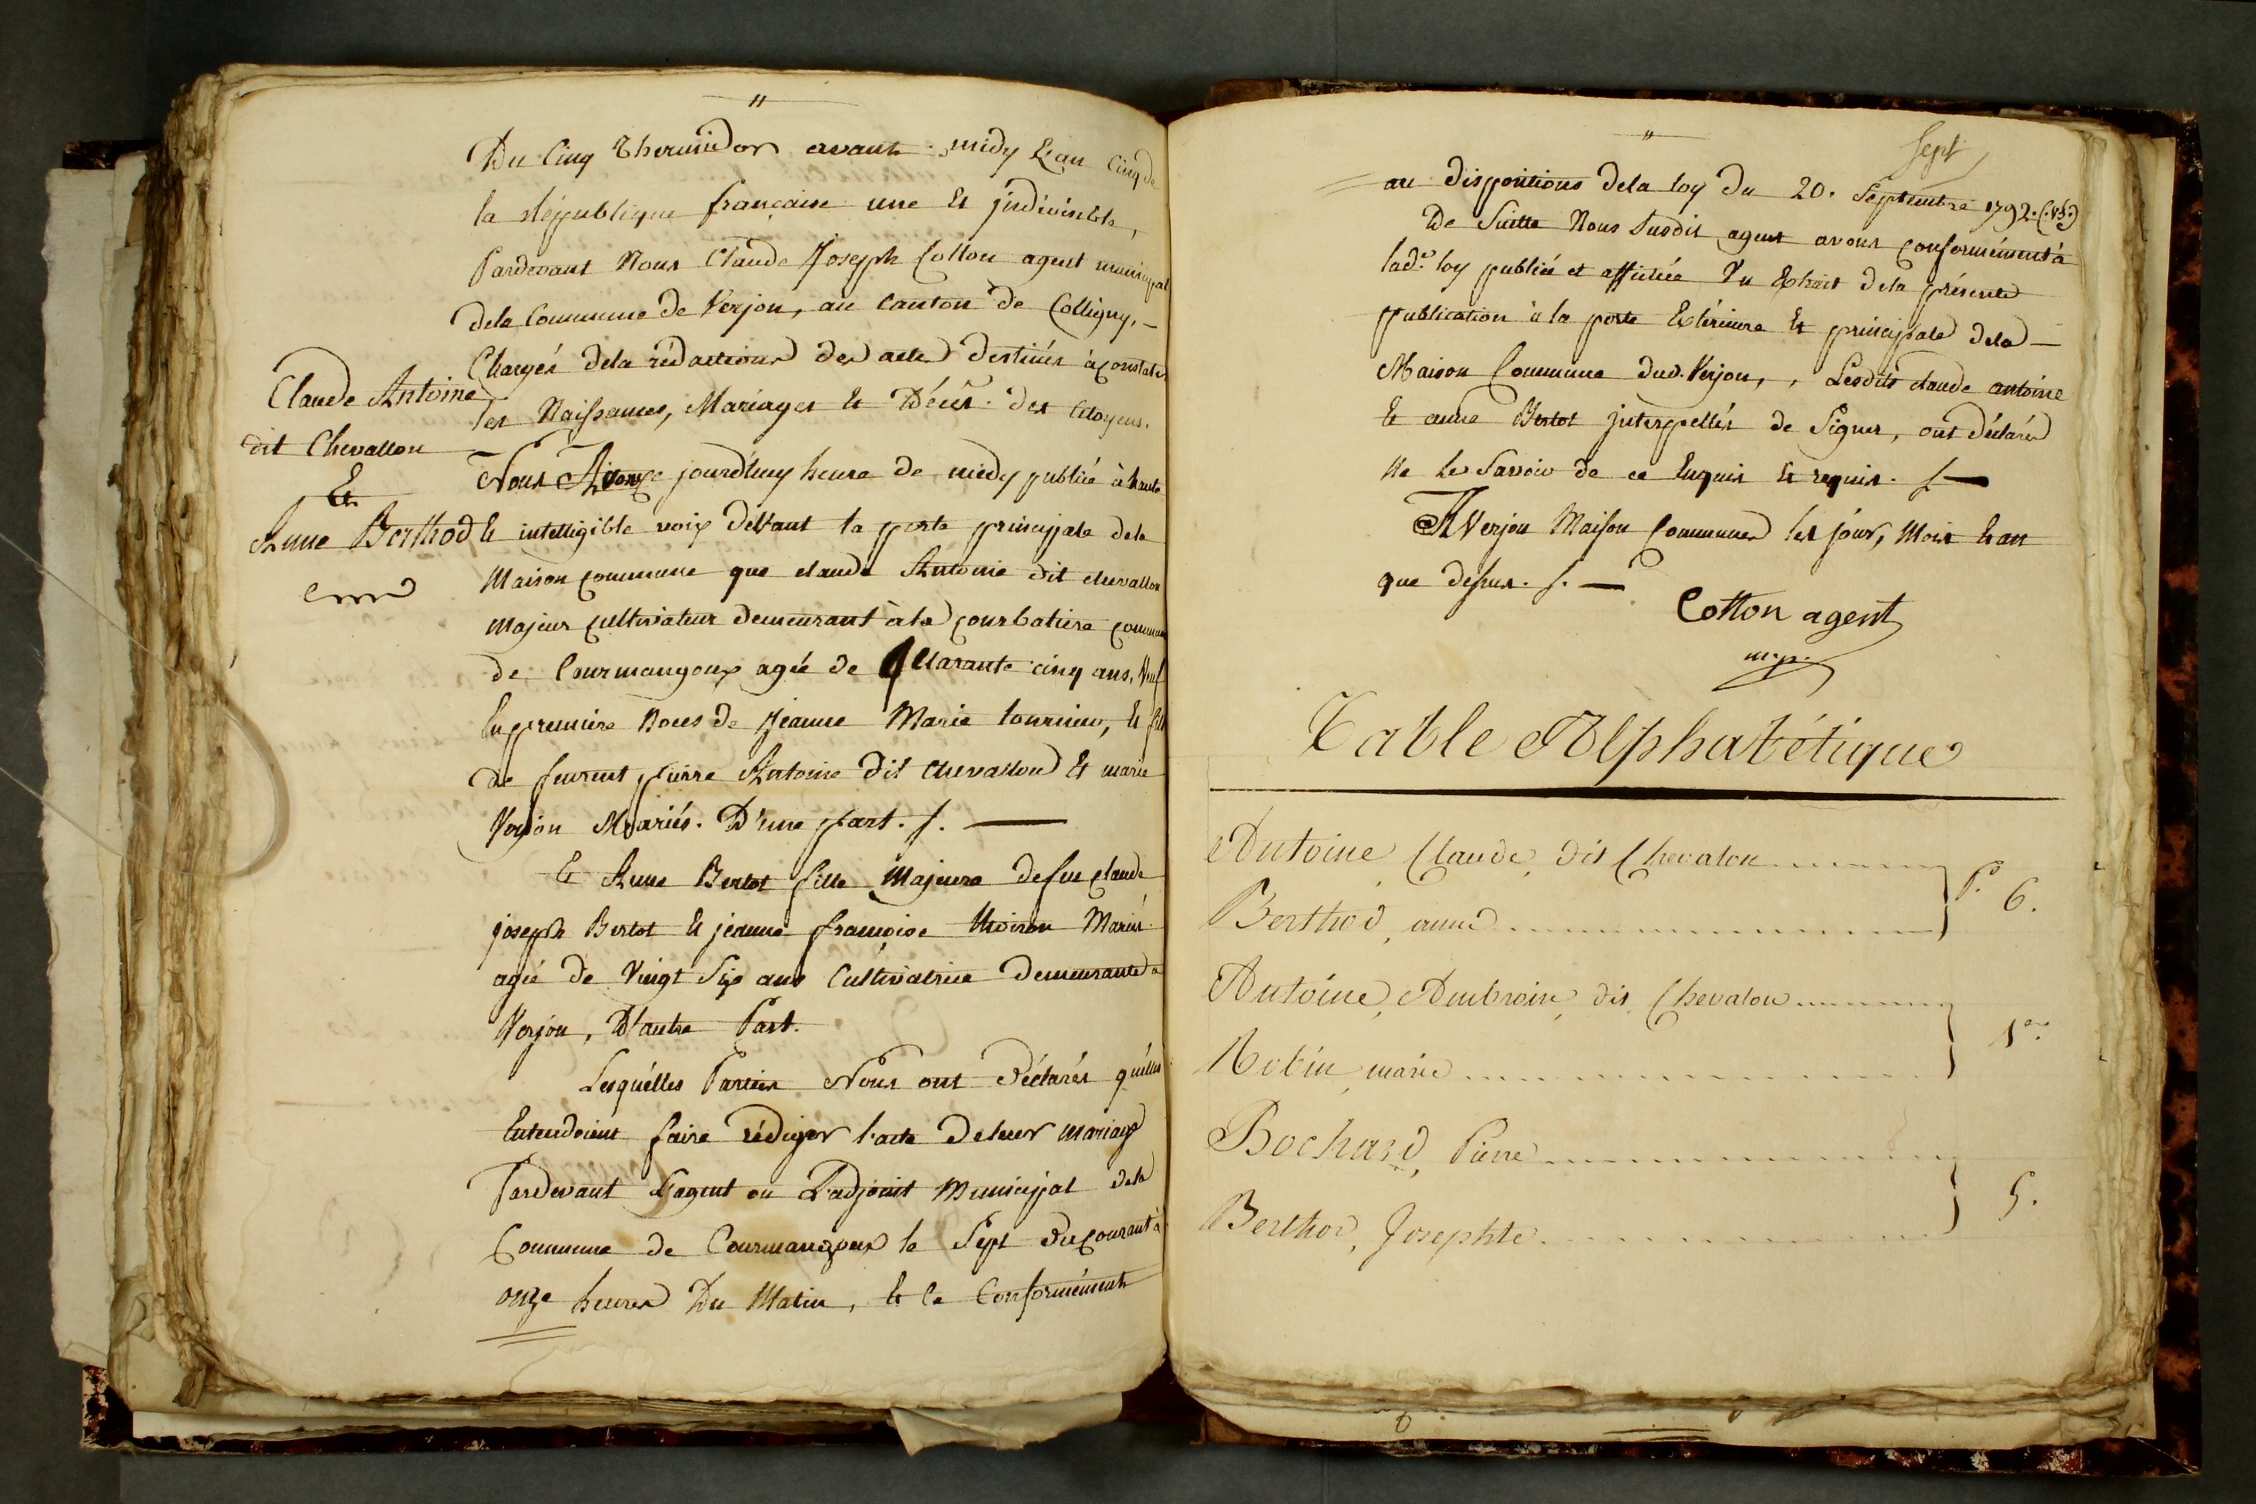 Du Cinq thermidor avant midy L'an Cinq de
la république française une Et jndivisible,
Pardevant Nous Claude Joseph Cotton agent municipal
dela Commune de Verjon, au canton de Colligny, —
Chargés dela rédactions des actes destinés à constater
les Naissances, Mariages Et Décès des Citoyens.
Claude Antoine
dit Chevallon
Et
Anne Berthod
Nous Avons jourd'huy heure de midy publié à haute
Et intelligible voix devant la porte principale dela
Maison commune que claude Antoine dit chevallon
majeur cultivateur demeurant à la courbatiere commune
de Courmangoux agée de quarante cinq ans, Veuf
En premiere Noces de Jeanne Marie tournier, Et fils
de feurent pierre Antoine dit chevallon Et marie
Verjon Mariés. D'une part. /. —
Et Anne Bertot fille Majeure de feu claude
joseph Bertot Et jeanne françoise Moiron Mariés
agée de Vingt Six ans Cultivatrice demeurante à
Verjon, D'autre Part.
Lesquélles Parties Nous ont déclarés qu'elles
Entendoient faire rédiger l'acte deleur mariage
Pardevant L'agent ou L'adjoint Municipal dela
Commune de Courmangoux le Sept du courant à
onze heures Du Matin, Et ce Conformément
Sept
au dispositions dela loy du 20. Septembre 1792. (: v.s :)
De Suitte Nous Susdit agent avons conformément à
lad.e loy publiée et affichée Un Extrait dela présente
publication à la porte Extérieure Et principale dela —
Maison Commune dud. Verjon, , Lesdits claude antoine
Et anne Bertot jnterpellés de Signer, ont déclarés
Ne le Savoir de ce Enquis Et requis. /. —
A Verjon Maison Commune les jour, Mois Et an
que dessus. /. —
Cotton agent
mp.
Table Alphabétique
Antoine, Claude, dit Chevalon
P.e 6.
Berthod, anne
Antoine, Ambroise, dit Chevalon
1.ere
Robin, marie
Bochard, Pierre
5.
Berthod, Josephte